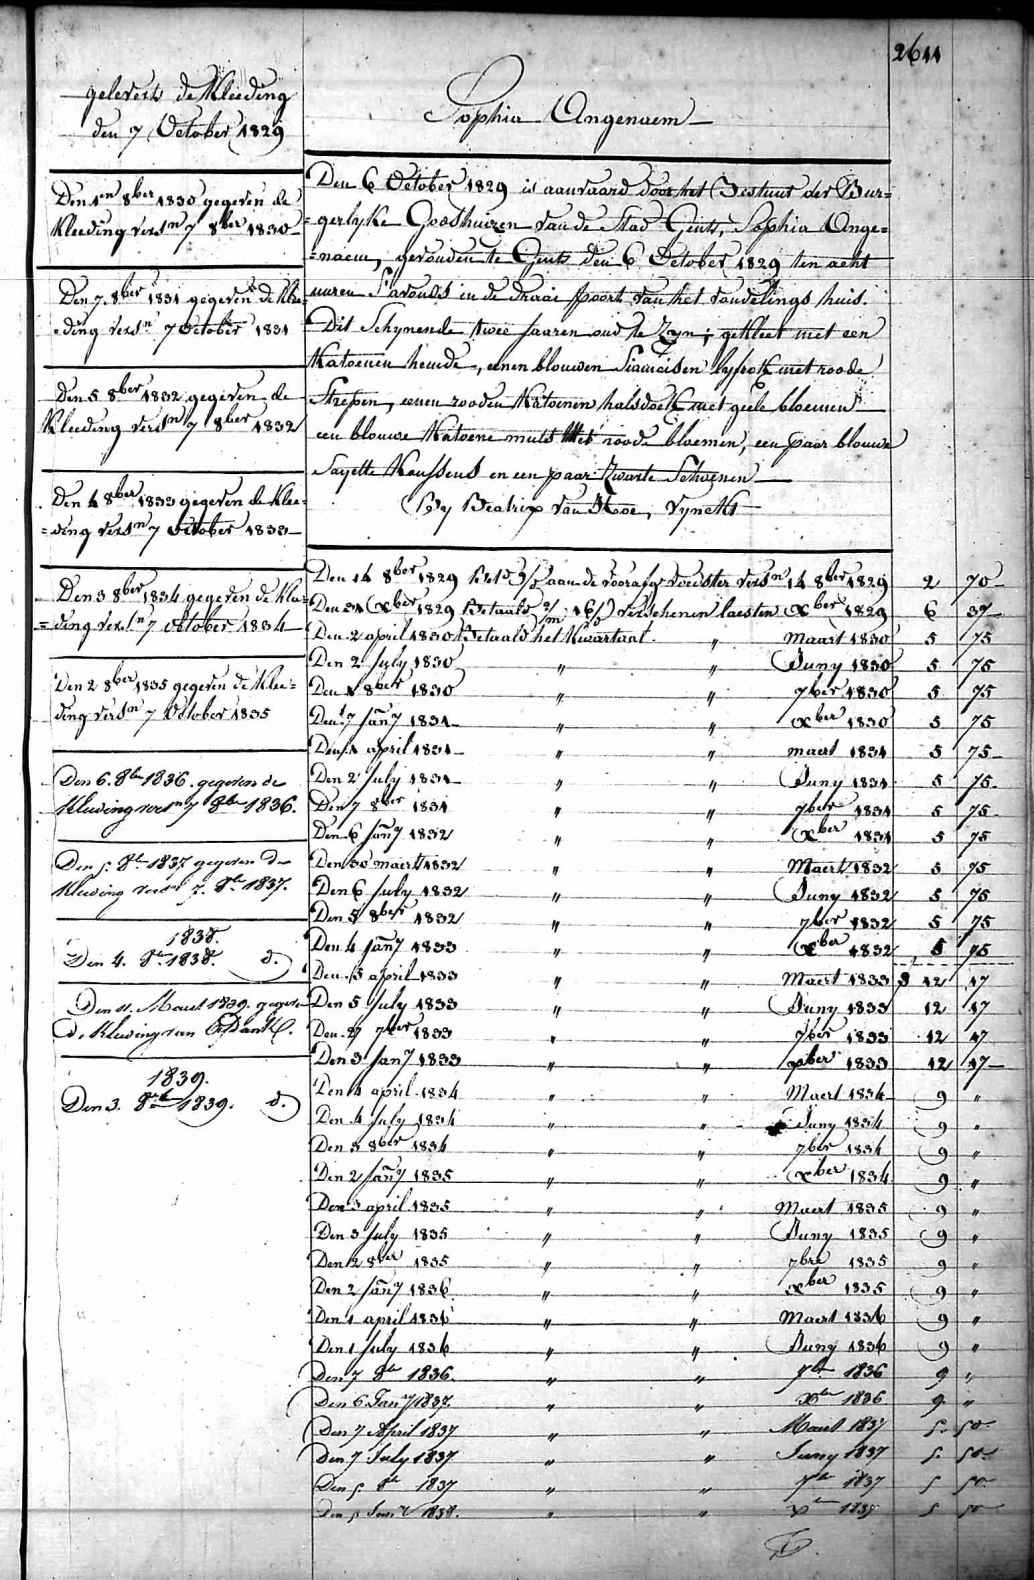 2611
geleverd de Kleeding
den 7 October 1829
Den 1en 8ber 1830 gegeven de
Kleeding versn 7 8ber 1830
Den 7 8ber 1831 gegeven de Klee=
=ding versn 7 October 1831
Den 5 8ber 1832 gegeven de
Kleeding versn 7 8ber 1832
Den 4 8ber 1833 gegeven de Klee=
=ding versn 7 October 1833
Den 3 8ber 1834 gegeven de Klee=
=ding versn 7 October 1834
Den 2 8ber 1835 gegeven de Klee=
ding versn 7 October 1835
Den 6. 8ber 1836. gegeven de
Kleeding versn 7 8ber 1836.
Den 5. 8er 1837 gegeven de
Kleeding versn 7. 8er 1837.
1838.
Den 4. 8er 1838. d.
Den 11. Maert 1839. gegeven
d. Kleeding van
1839.
Den 3. 8er 1839. d.
Sophia Angenaem
Den 6 October 1829 is aanvaard door het Bestuur der Bur=
=gerlyke Godshuizen van de Stad Gent, Sophia Ange=
=naem, gevonden te Gent den 6 October 1829 ten acht
uuren s'avonds in de draai poort van het vondelings huis.
Dit Schynende twee Jaaren oud te Zyn; gekleet met een
Katoenen hemde, eenen blouwen Siamoisen lyfrok met roode
Strepen, eenen rooden Katoenen halsdoek met geele bloemen
een blouwe Katoene muts met roode bloemen, een paar blouwe
Sayette Kaussens en een paar Zwarte Schoenen
By Beatrix van Hooe, Vynckt
Den 14 8ber 1829 aan de voorafg voedster versn 14 8ber 1829 2 70
Den 31 Xber 1829 Betaald verschenen laesten Xber 1829 6 37
Den 2 april 1830 Betaald het Kwartaal " Maart 1830 5 75
Den 2 July 1830 " " Juny 1830 5 75
Den 1 8ber 1830 " " 7ber 1830 5 75
Den 7 Jany 1831 " " Xber 1830 5 75
Den 1 april 1831 " " maert 1831 5 75
Den 2 July 1831 " " Juny 1831 5 75
Den 7 8ber 1831 " " 7ber 1831 5 75
Den 6 Jany 1832 " " Xber 1831 5 75
Den 30 maert 1832 " " Maert 1832 5 75
Den 6 July 1832 " " Juny 1832 5 75
Den 5 8ber 1832 " " 7ber 1832 5 75
Den 4 Jany 1833 " " Xber 1832 5 75
Den 5 april 1833 " " Maert 1833 12 17
Den 5 July 1833 " " Juny 1833 12 17
Den 27 7ber 1833 " " 7ber 1833 12 17
Den 3 Jany 1833 " " Xber 1833 12 17
Den 4 april 1834 " " Maert 1834 9 "
Den 4 July 1834 " " Juny 1834 9 "
Den 3 8ber 1834 " " 7ber 1834 9 "
Den 2 Jany 1835 " " Xber 1834 9 "
Den 3 april 1835 " " Maert 1835 9 "
Den 3 July 1835 " " Juny 1835 9 "
Den 2 8ber 1835 " " 7bre 1835 9 "
Den 2 Jany 1836 " " Xber 1835 9 "
Den 1 april 1836 " " Maert 1836 9 "
Den 1 July 1836 " " Juny 1836 9 "
Den 7 8er 1836. " " 7er 1836 9 "
Den 6 Jany 1837. " " Xer 1836 9. "
Den 7 April 1837 " " Maert 1837 5. 50
Den 7 July 1837 " " Juny 1837 5. 50
Den 5. 8er 1837 " " 7er 1837 5 50
Den 5 Jany 1838. " " Xer 5 50